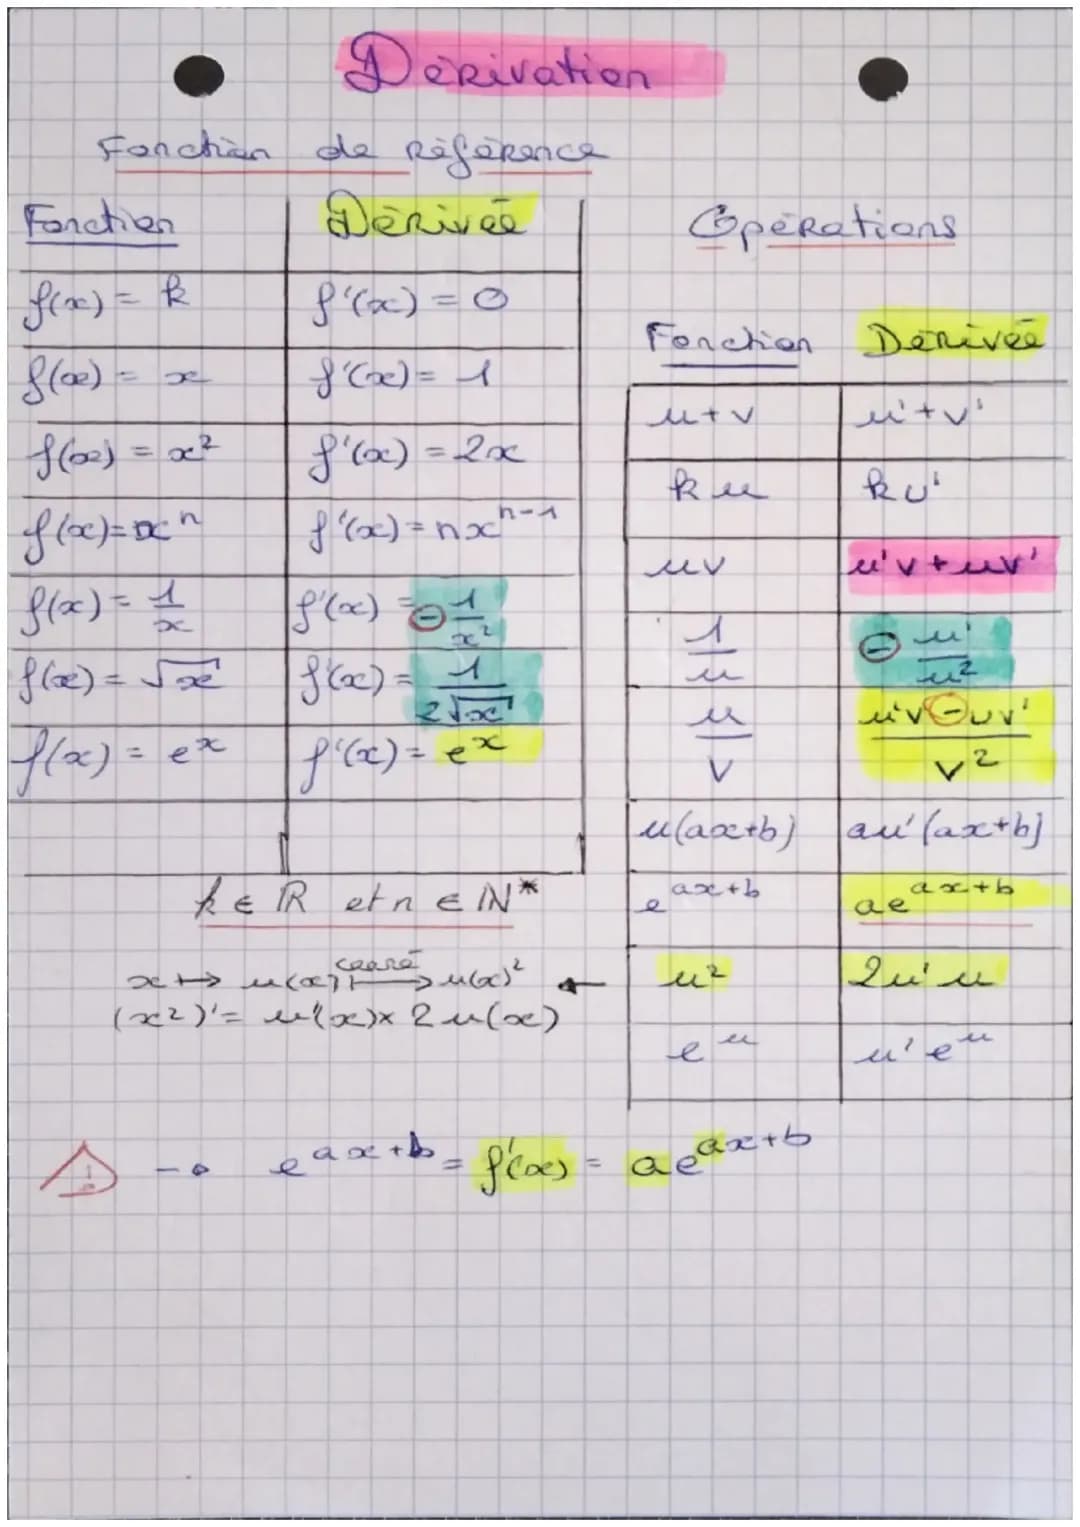 Dérivation
Fonction de référence
Fonction Dérivée
f(x) = k f'(x) = 0
f(x) = x f'(x) = 1
f(x) = x² f'(x) = 2x
f(x) = xⁿ f'(x) = nxⁿ⁻¹
f(x) = 1/x f'(x) = - 1/x²
f(x) = √x f'(x) = 1/(2√x)
f(x) = eˣ f'(x) = eˣ
k ∈ ℝ et n ∈ ℕ*
x ↦ u(x) ↦ carré u(x)² ←
(x²)' = u'(x) × 2u(x)
Opérations
Fonction Dérivée
u+v u'+v'
ku ku'
uv u'v + uv'
1/u - u'/u²
u/v (u'v - uv')/v²
u(ax+b) au'(ax+b)
e^(ax+b) ae^(ax+b)
u² 2u'u
e^u u'e^u
⚠ → e^(ax+b) = f'(x) = ae^(ax+b)